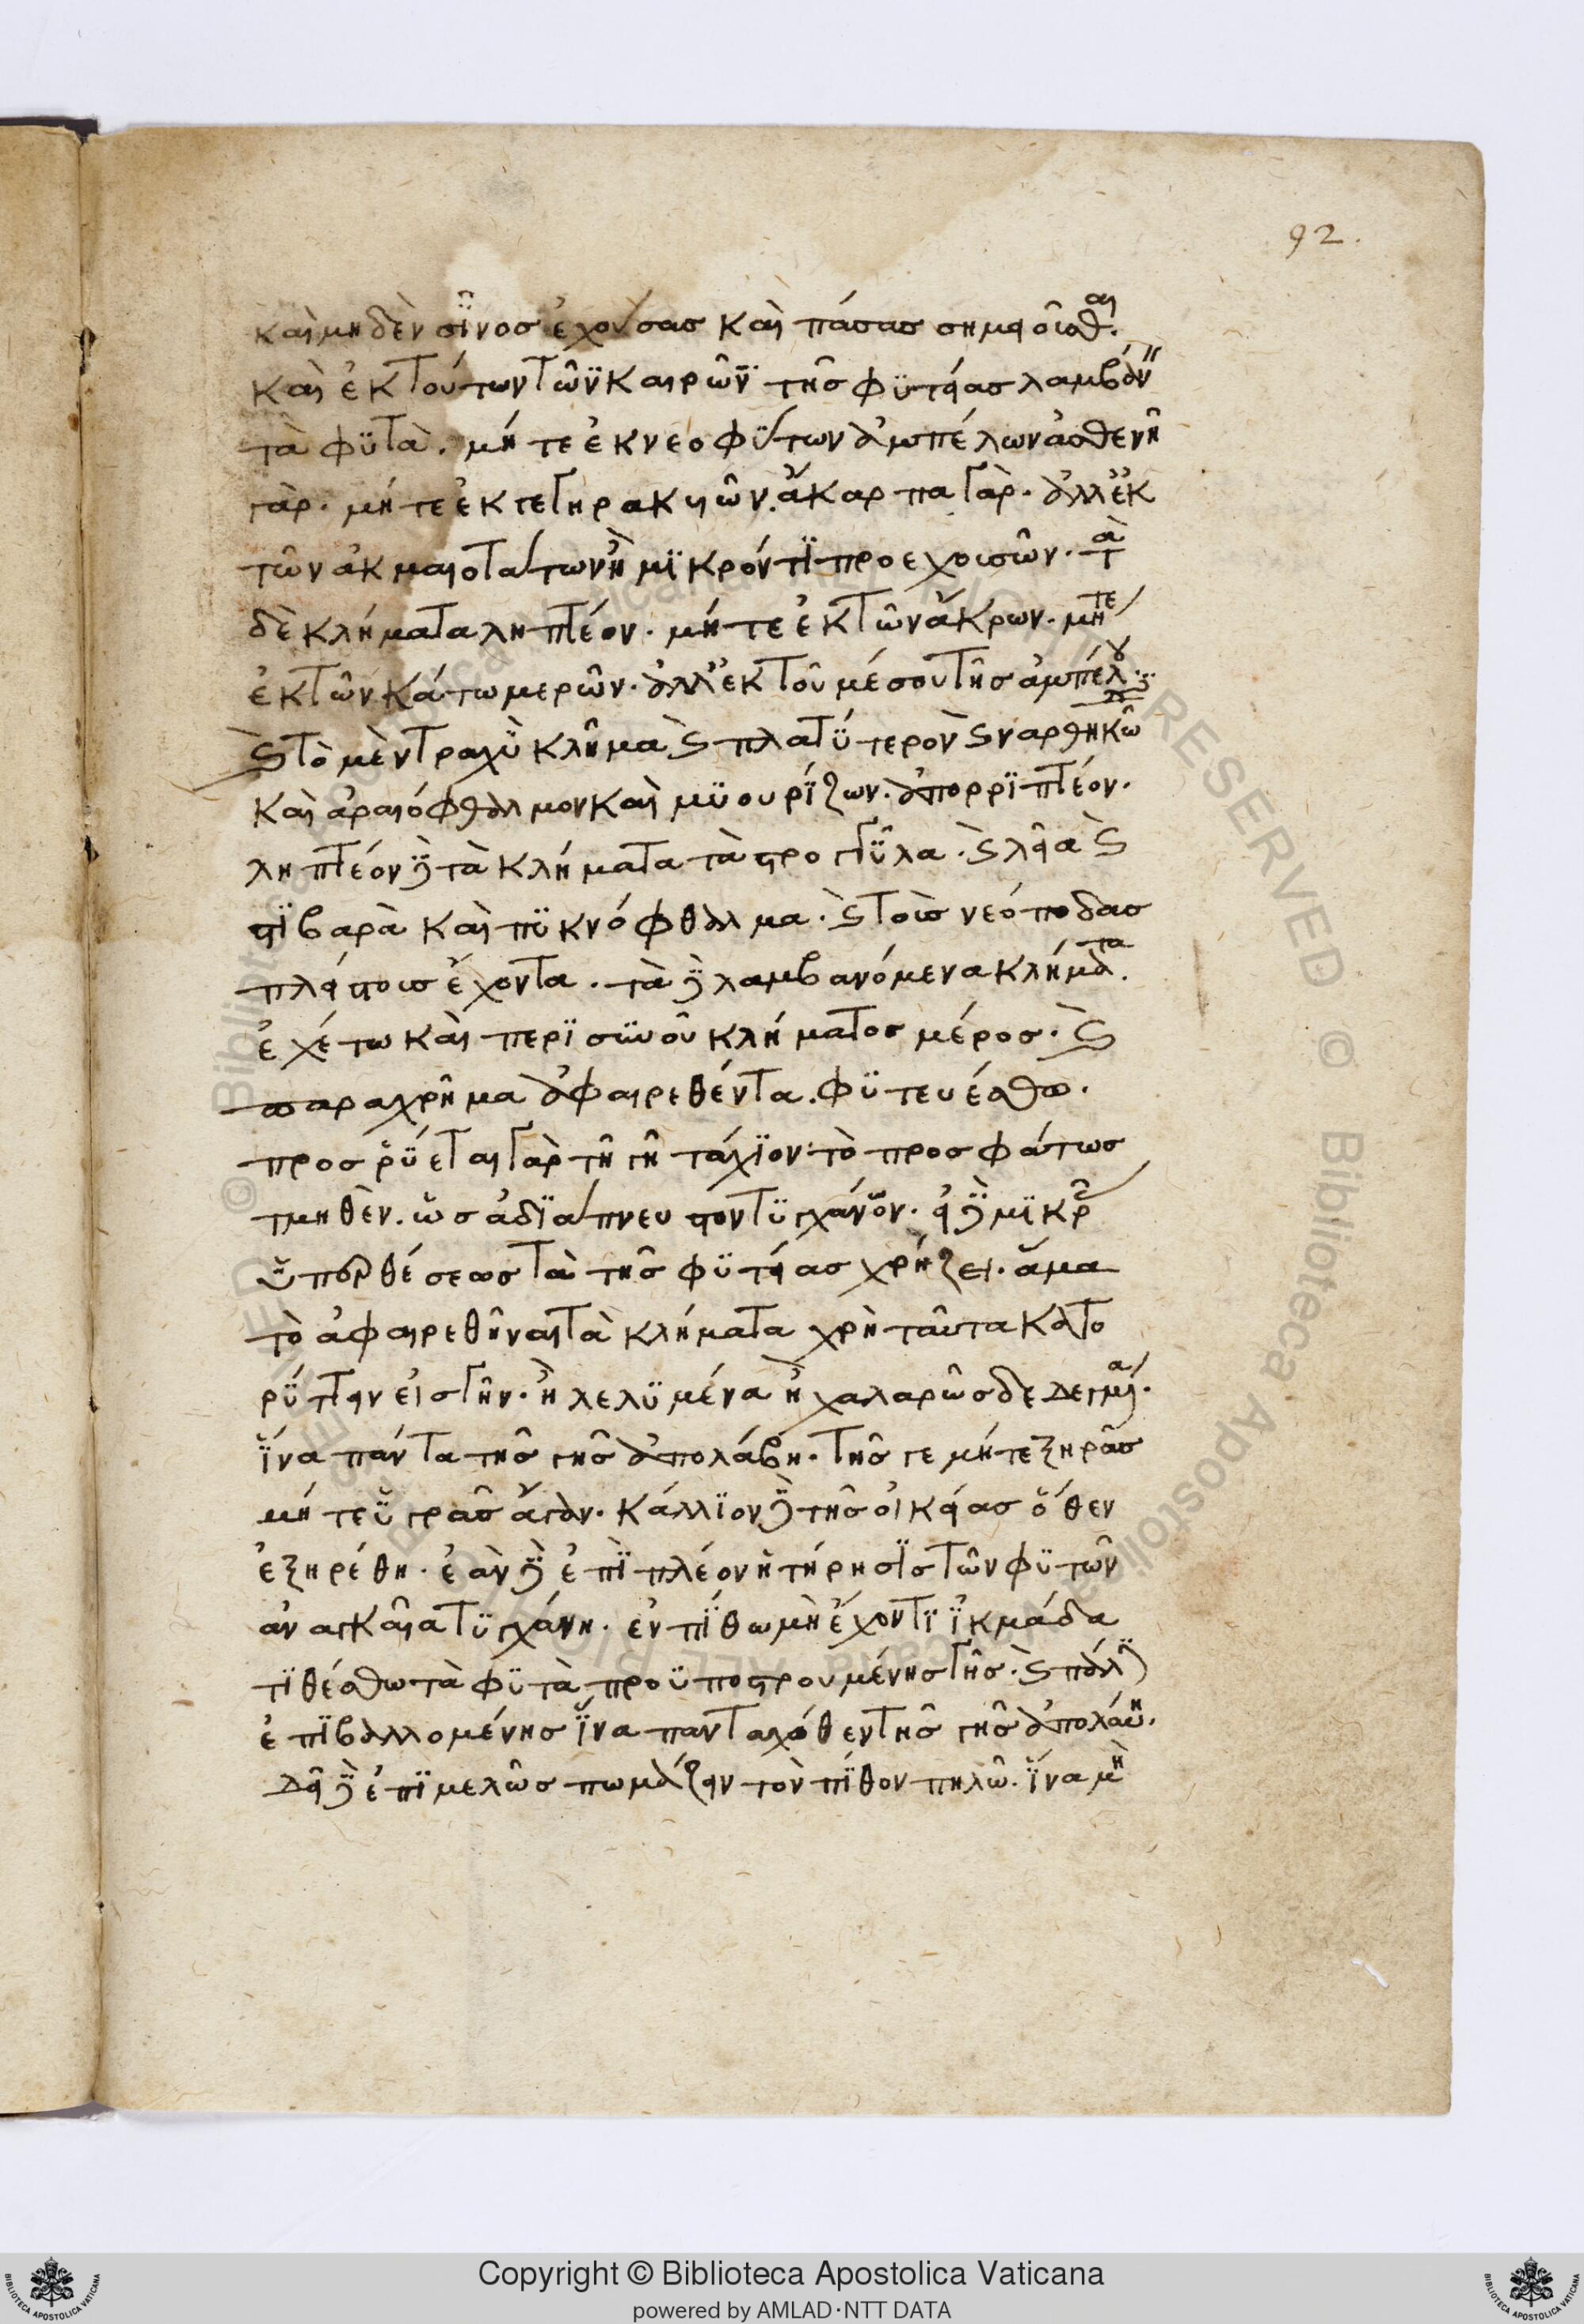 92.
καὶ μηδὲν σῖνος ἐχούσας καὶ πάσας σημειοῦσθαι.
καὶ ἐκ τούτων τῶν καιρῶν τῆς φυτείας λαμβάνειν
τὰ φϋτὰ. μήτε ἐκ νεοφύτων ἀμπέλων ἀσθενῆ
γὰρ. μήτε ἐκ γεγηρακυιῶν. ἄκαρπα γὰρ. ἀλλ' ἐκ
τῶν ἀκμαιοτάτων ἢ μϊκρόν τϊ προεχουσῶν. τὰ
δὲ κλήματα ληπτέον. μήτε ἐκ τῶν ἄκρων. μήτε
ἐκ τῶν κάτω μερῶν. ἀλλ' ἐκ τοῦ μέσου τῆς ἀμπέλου
καὶ τὸ μὲν τραχὺ κλῆμα καὶ πλατϋτερον καὶ ναρθηκῶδες
καὶ ἀραιόφθαλμον καὶ μϋουρίζων. ἀπορρϊπτέον.
ληπτέον δὲ τὰ κλήματα τὰ στρογγῦλα. καὶ λεῖα καὶ
στϊβαρὰ καὶ πϋκνόφθαλμα. καὶ τοὺς νεόποδας
πλείστους ἔχοντα. τὰ δὲ λαμβανόμενα κλήματα.
ἐχέτω καὶ περϊσϋνοῦ κλήματος μέρος. καὶ
παραχρῆμα ἀφαιρεθέντα. φϋτευέσθω.
προσφϋέται γὰρ τῆ γῆ τάχϊον. τὸ προσφάτως
τμηθὲν. ὡς ἀδϊάπνευστον τϋγχάνον. εἰ δὲ μϊκρᾶς
ὑπερθέσεως τὰ τῆς φϋτείας χρήζει. ἅμα
τὸ ἀφαιρεθῆναι τὰ κλήματα χρὴ ταῦτα κατο
ρύττειν εἰς γῆν. ἢ λελϋμένα ἢ χαλαρῶς δεδεσμημένα.
ἵνα πάντα τῆς γῆς ἀπολάβη. γῆς γε μήτε ξηρᾶς
μήτε ὑγρᾶς ἄγαν. κάλλϊον δὲ τῆς οἰκείας ὅθεν
ἐξηρέθη. ἐὰν δὲ ἐπϊπλέον ἡ τήρησϊς τῶν φϋτῶν
ἀναγκαῖα τϋγχάνη. ἐν πϊθω μὴ ἔχοντϊ ἰκμάδα
τϊθέσθω τὰ φϋτὰ προϋποστρουμένης γῆς. καὶ πάλϊν
ἐπϊβαλλομένης ἵνα πανταχόθεν τῆς γῆς ἀπολάυη.
δεῖ δὲ ἐπϊμελῶς πωμάζειν τὸν πίθον πηλῶ. ἵνα μὴ
Copyright © Biblioteca Apostolica Vaticana
powered by AMLAD·NTT DATA